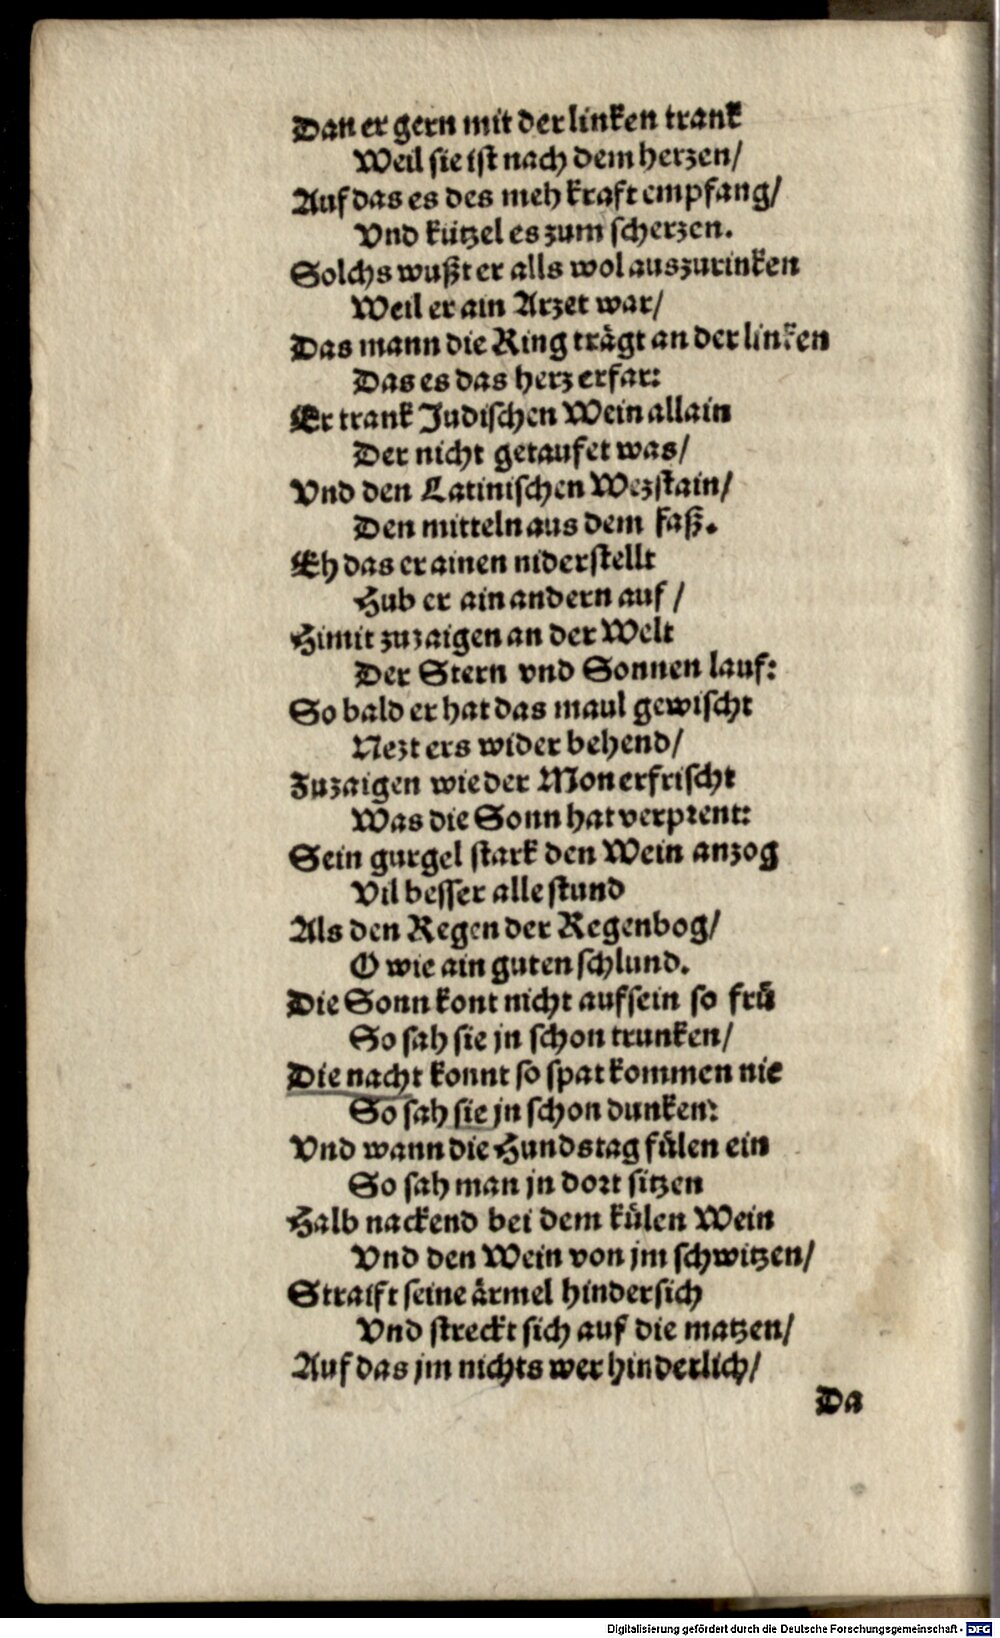 Dan er gern mit der linken trank
Weil sie ist nach dem herzen/
Auf das es des meh kraft empfang/
Vnd kützel es zum scherzen.
Solchs wußt er alls wol auszurinken
Weil er ain Arzet war/
Das mann die Ring trägt an der linken
Das es das herz erfar:
Er trank Judischen Wein allain
Der nicht getaufet was/
Vnd den Latinischen Wezstain/
Den mitteln aus dem faß.
Eh das er ainen niderstellt
Hub er ain andern auf /
Himit zuzaigen an der Welt
Der Stern vnd Sonnen lauf:
So bald er hat das maul gewischt
Nezt ers wider behend/
Zuzaigen wie der Mon erfrischt
Was die Sonn hat verprent:
Sein gurgel stark den Wein anzog
Vil besser alle stund
Als den Regen der Regenbog/
O wie ain guten schlund.
Die Sonn kont nicht aufsein so frü
So sah sie jn schon trunken/
Die nacht konnt so spat kommen nie
So sah sie jn schon dunken:
Vnd wann die Hundstag fülen ein
So sah man jn dort sitzen
Halb nackend bei dem külen Wein
Vnd den Wein von jm schwitzen/
Straift seine ärmel hindersich
Vnd streckt sich auf die matzen/
Auf das jm nichts wer hinderlich/
Da
Digitalisierung gefördert durch die Deutsche Forschungsgemeinschaft - DFG